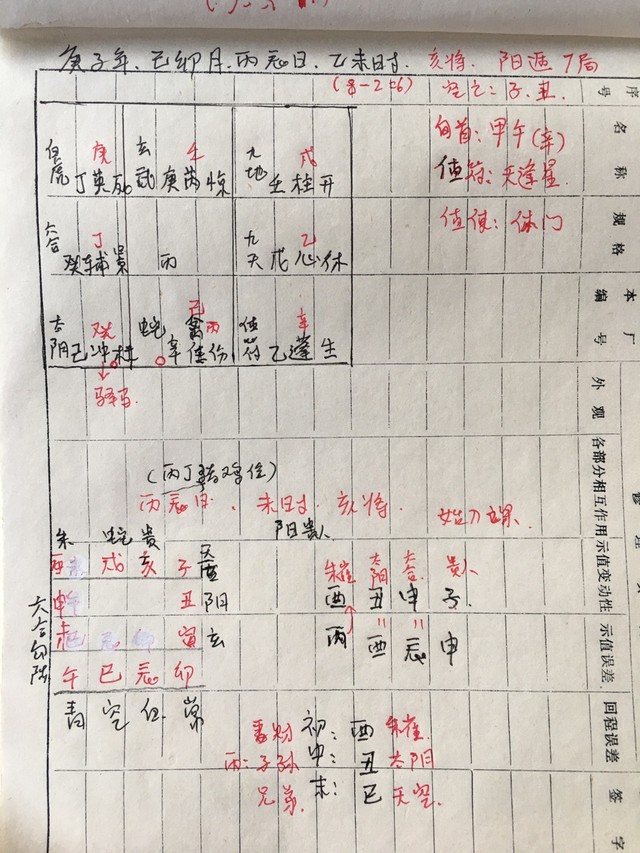 庚子年、己卯月、丙辰日、乙未时、亥将、阳遁7局
(8-2-6) 空亡:子、丑
旬首:甲午(辛)
值符:天蓬星
值使:休门
虎 玄 午 九 戊
白虎 丁英死 武 庚芮惊 地 壬柱开
六合 丁 九 乙
癸辅景 丙 天 戊心休
太 癸 蛇 禽 己 丙 值 辛
阴 己冲杜 辛任伤 符 乙蓬生
驿马
(丙丁猪鸡位)
丙辰日、未时、亥将
阳贵人
朱 蛇 贵
戌 亥 子 后
申 丑 阴
寅 玄
午 巳 辰 卯
青 空 白 常
六合 勾陈
朱雀 太阴 六合 贵人
酉 丑 申 子
丙 酉 辰 申
妻财 初:酉 朱雀
丙:子孙 中:丑 太阴
兄弟 末:巳 天空
序号
名称
规格
本厂编号
外观
各部分相互作用
示值变动性
示值误差
回程误差
签字